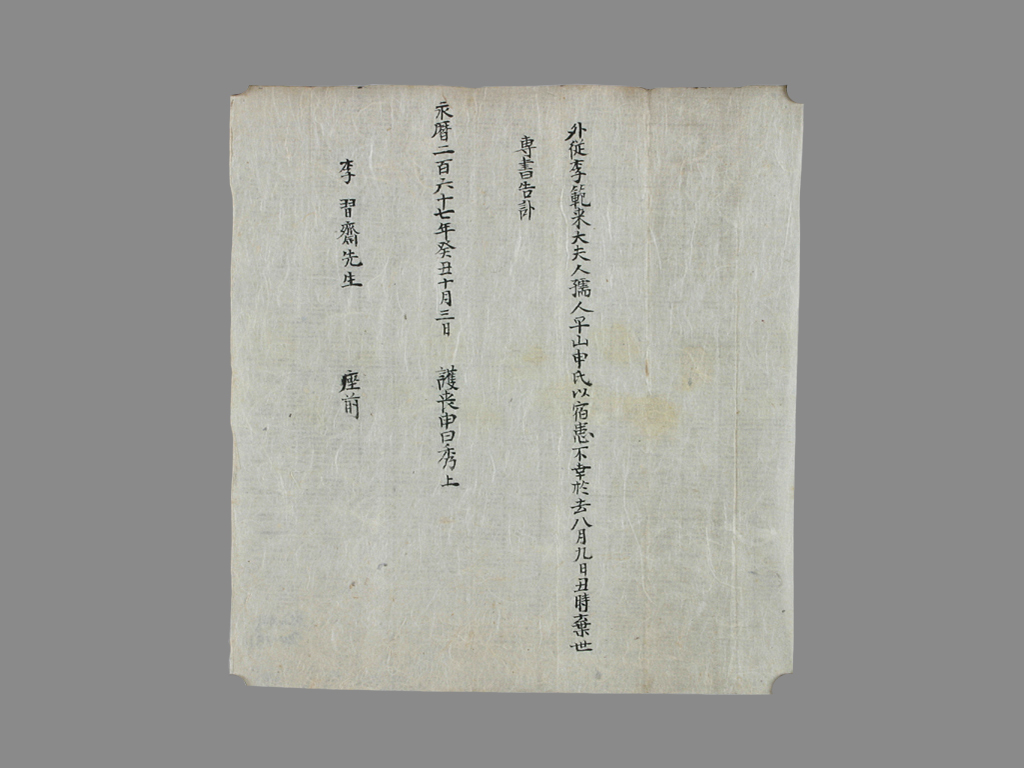 外從李範来大夫人孺人平山申氏以宿患不幸於去八月九日丑時棄世
專書告訃
永曆二百六十七年癸丑十月三日 護喪申曰秀上
李習齋先生 座前